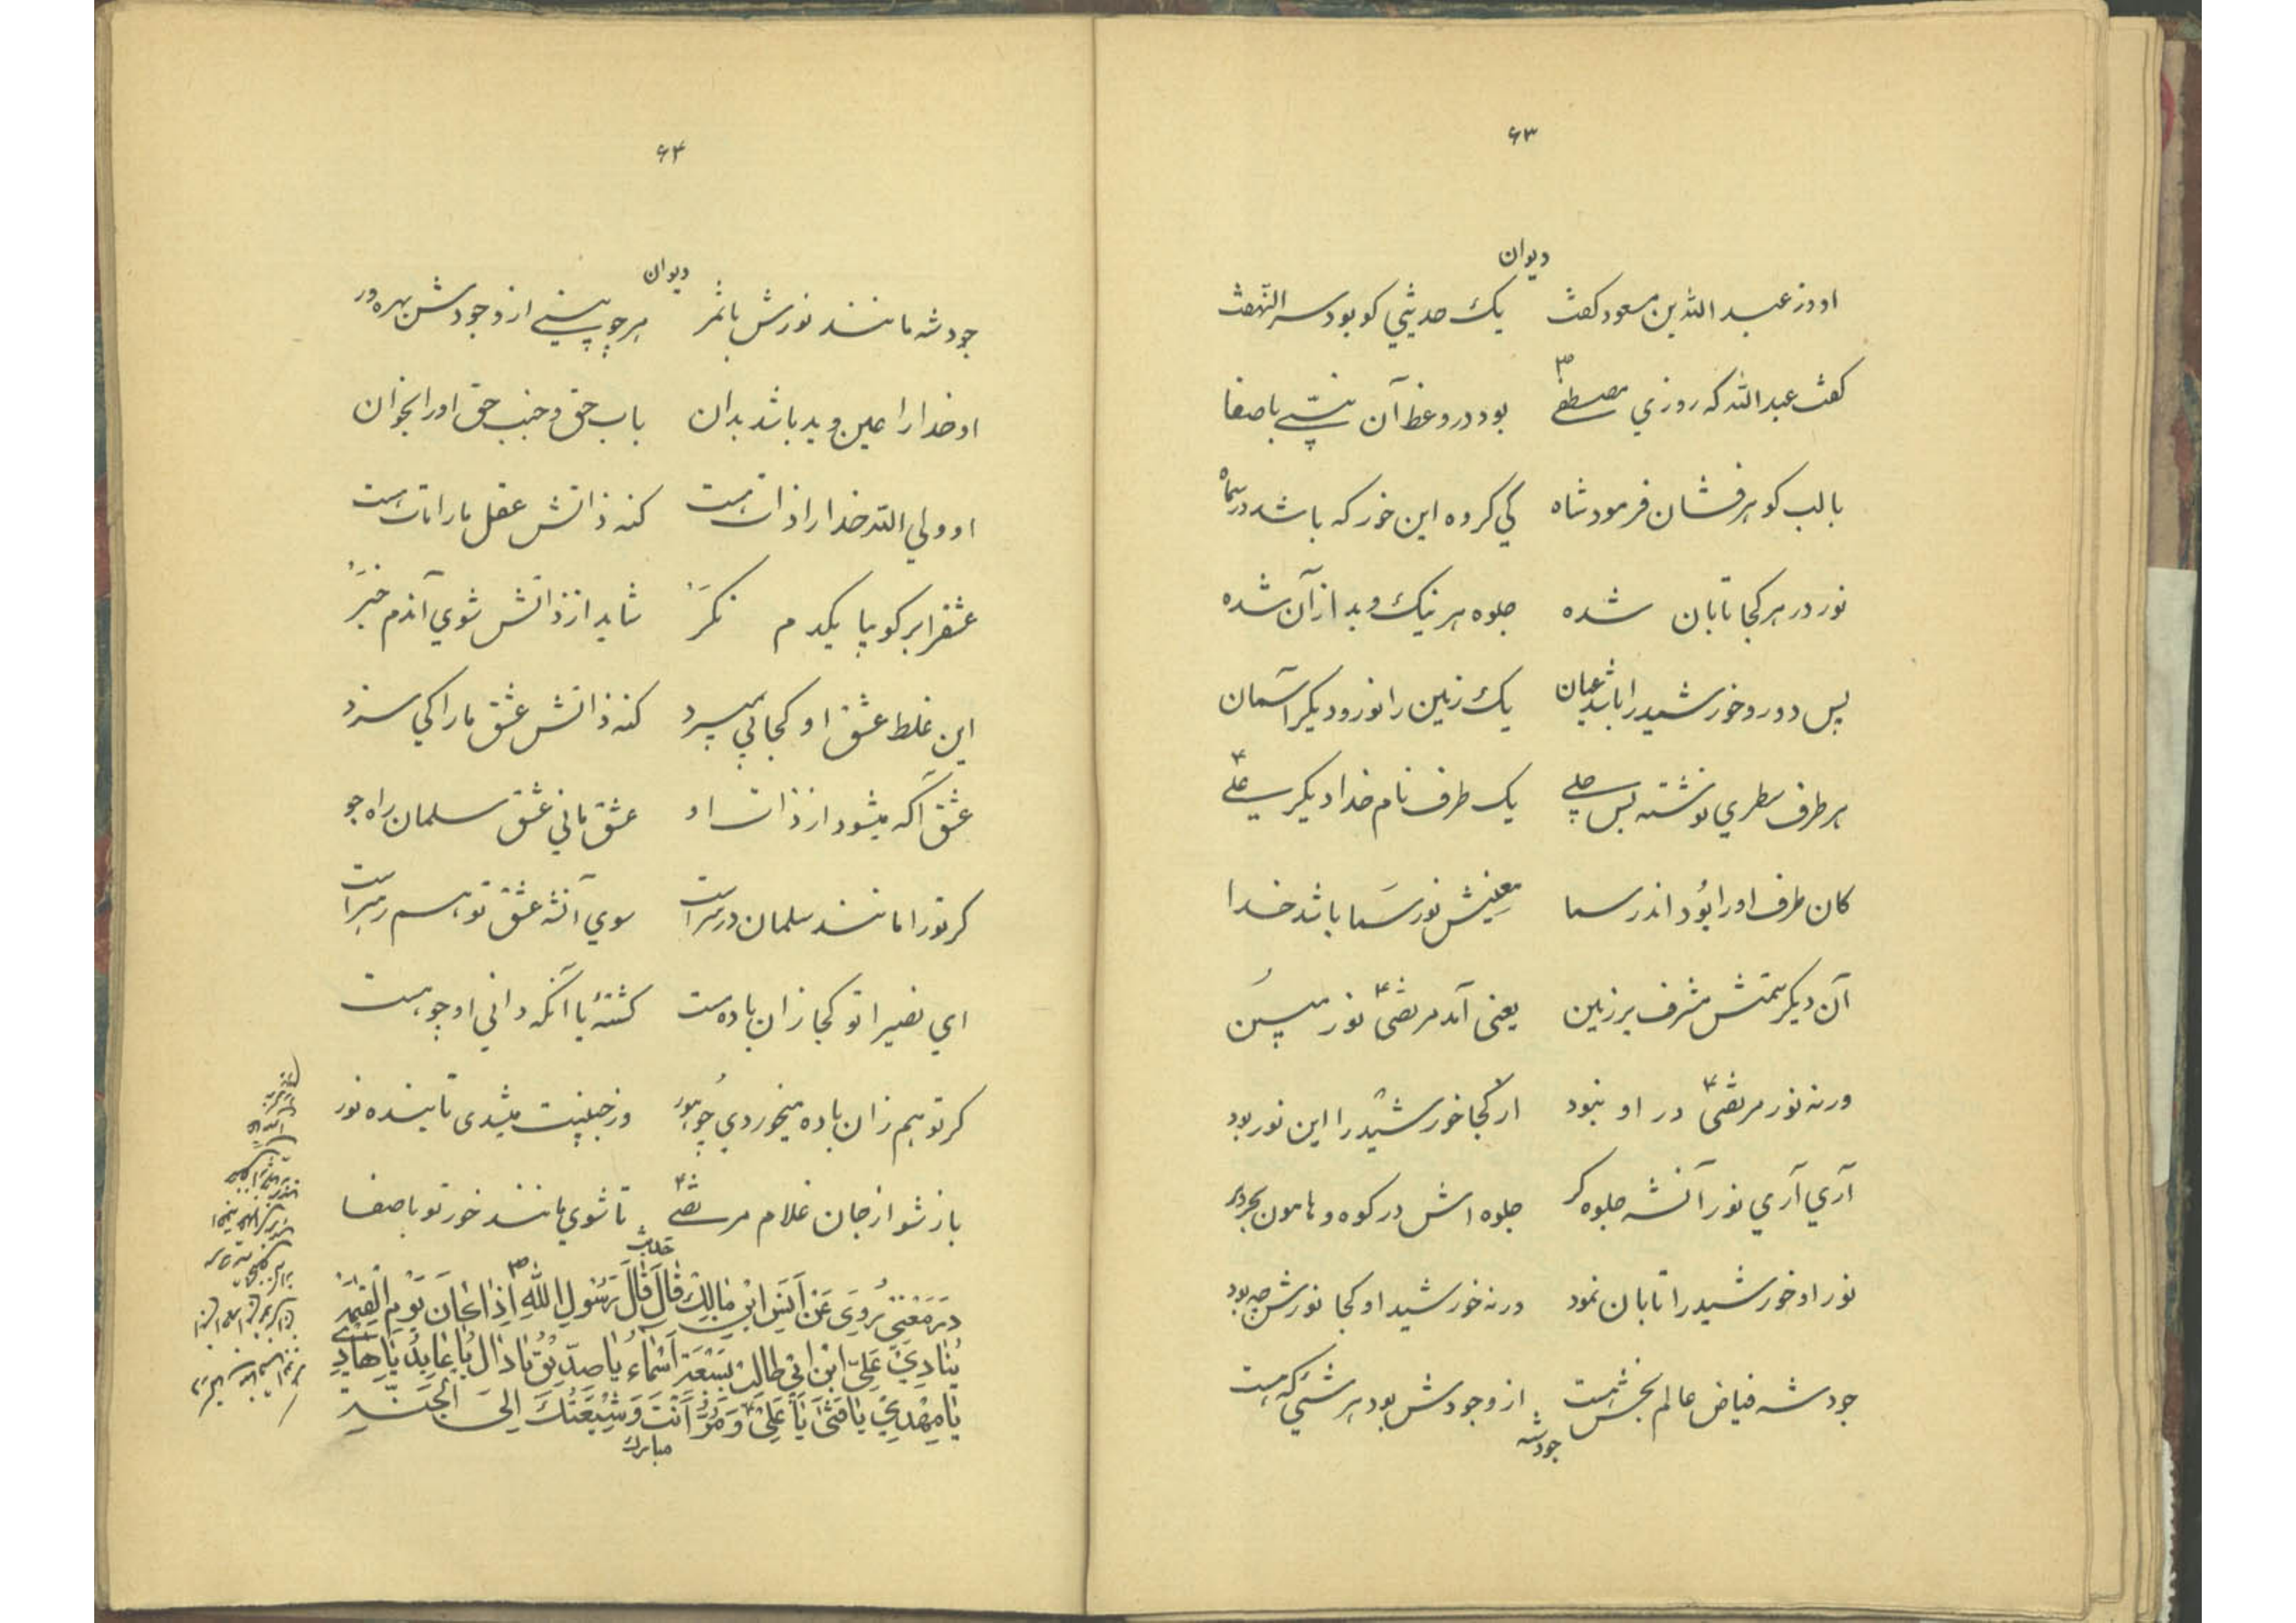 ۶۳
دیوان
او وز عبد الله بن مسعود کفت یک حدیثي کو بود سر النهفت
کفت عبد الله که روزي مصطفی ص بود در وعظ آن نبیّ با صفا
با لب کوهر فشان فرمود شاه کي کروه این خور که باشد در سماه
نور در هر کجا تابان شده جلوه هر نیک و بد از آن شده
پس دو رو خورشید را باشد عیان یک زمین را نور و دیکر آسمان
هر طرف سطري نوشته بس جلي یک طرف نام خدا دیکر علي ع
کان طرف او را بُود اندر سما معنیش نور سَما باشد خدا
آن دیکر سمتش مشرف بر زمین یعنی آمد مرتضی ع نور مبین
ورنه نور مرتضی ع در او نبود از کجا خورشید را این نور بود
آري آري نور آنشه جلوه کر جلوه اش در کوه و هامون بحر و بر
نور او خورشید را تابان نمود ورنه خورشید او کجا نورش چه بود
جود شه فیاض عالم بخش هست از وجودش بود هر شیَٔ که هست
جودشه
۶۴
دیوان
جود شه مانند نورش با ثمر هر چه بیني از وجودش بهره ور
او خدا را عین و ید باشد بدان باب حق و جنب حق او را بخوان
او ولي الله خدا را ذات هست کنه ذاتش عقل ما را مات هست
عشقرا بر کو بیا یکدم نکَر شاید از ذاتش شوي آندم خبَر
این غلط عشق او کجا پي میبرد کنه ذاتش عشق ما را کي سزد
عشق آکه میشود از ذات او عشق ماني عشق سلمان راه جو
کر تو را مانند سلمان در سر است سوي آنشه عشق تو هم رهبر است
اي نصیرا تو کجا زان باده مست کشتهٔ با آنکه داني او چه هست
کر تو هم زان باده میخوردي چه هور وز جبینت میشدی تابنده نور
باز شو از جان غلام مرتضی ع تا شوي مانند خور تو با صفا
حدیث
در مَعْني رُوِيَ عَنْ اَنَسِ ابْنِ مٰالِكْ قٰالَ قٰالَ رَسُولِ اللّٰهِ ص اِذٰا کٰانَ يَوْمِ الْقِيٰمَةِ
يُنٰادِيْ عَلِيِّ ابْنِ اَبي طٰالِبْ بِسَبْعَةِ اَسْمٰاءُ يٰا صِدّيقُ يٰا دٰالُ يٰا عٰابِدُ يٰا هٰادِي
يٰا مَهْدِيْ يٰا فَتیٰ يٰا عَلِيْ وَ مَرَّ اَنْتَ وَ شيٖعَتُكَ اِلیَ الْجَنَّةِ
مبارك